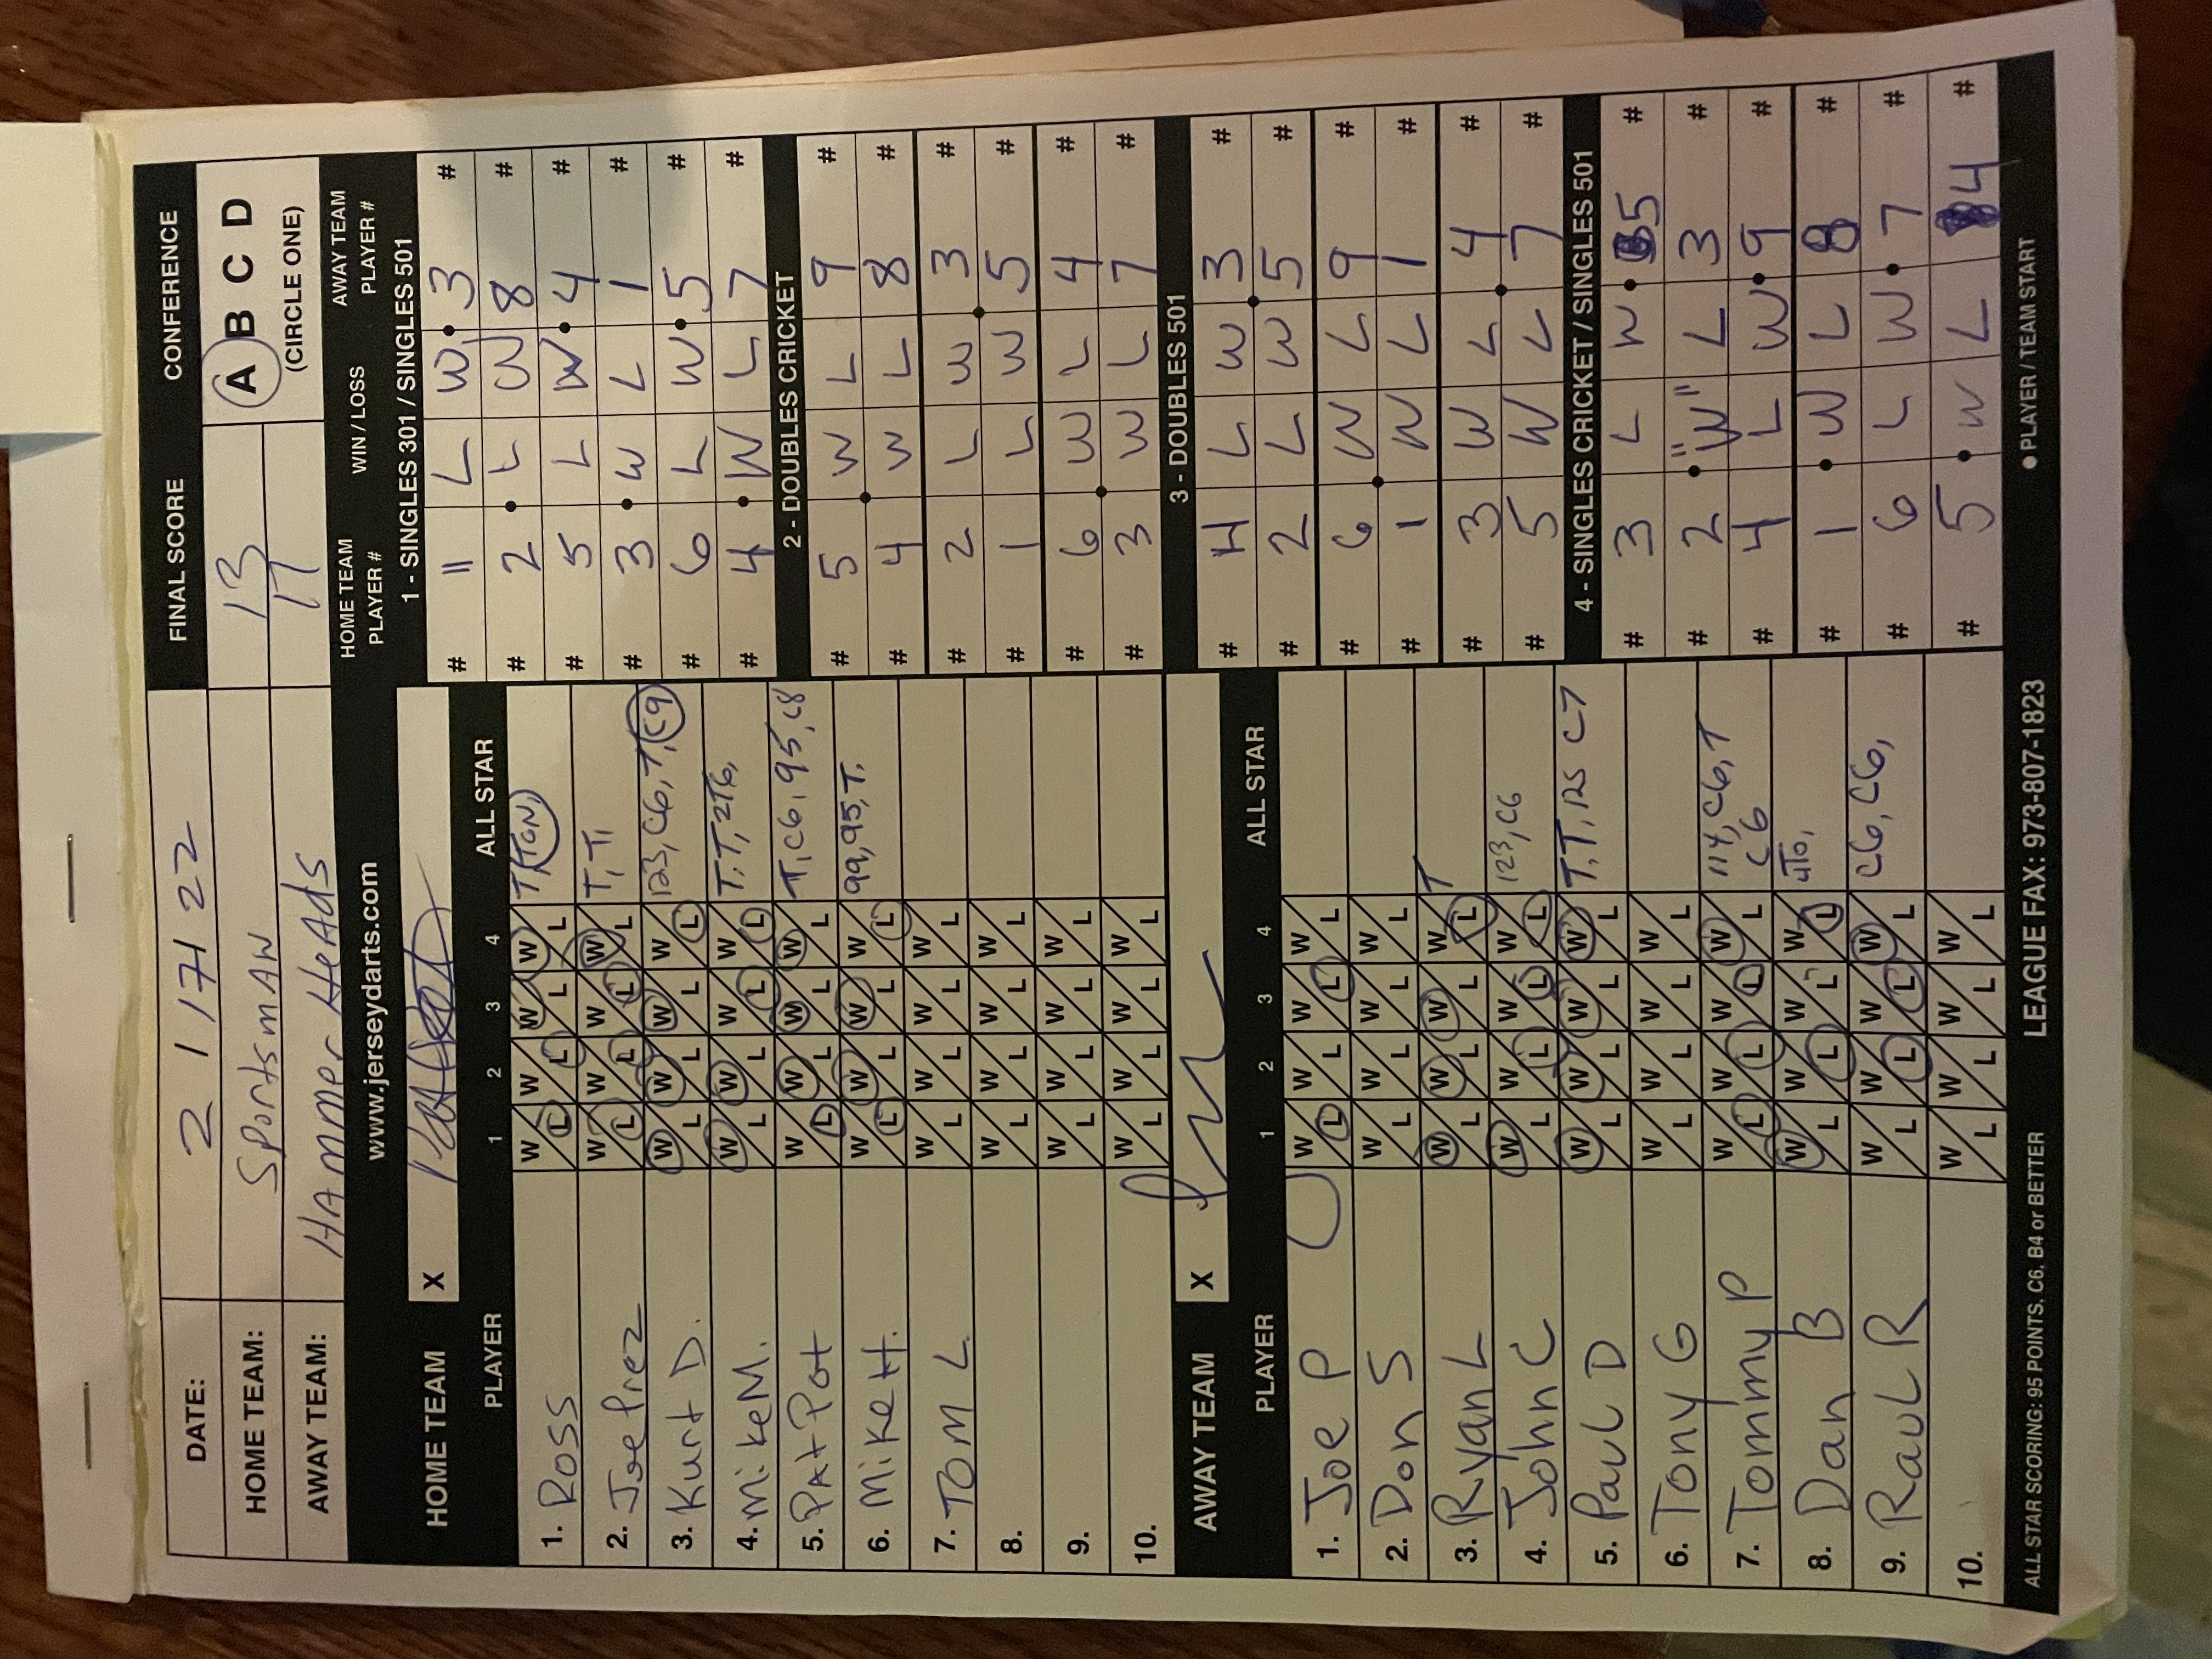 DATE: 2 / 17 / 22 FINAL SCORE CONFERENCE
HOME TEAM: Sportsman 13 A B C D
AWAY TEAM: Hammer Heads 17 (CIRCLE ONE)
www.jerseydarts.com
HOME TEAM X
PLAYER 1 2 3 4 ALL STAR
1. Ross W L W L W L W L T, TON,
2. Joe Prez W L W L W L W L T, T,
3. Kurt D. W L W L W L W L 123, C6, T, C9
4. Mike M. W L W L W L W L T, T,
5. Pat Pot W L W L W L W L T, C6, 95, C8
6. Mike H. W L W L W L W L 99, 95, T.
7. TOM L. W L W L W L W L
8. W L W L W L W L
9. W L W L W L W L
10. W L W L W L W L
AWAY TEAM X
PLAYER 1 2 3 4 ALL STAR
1. Joe P W L W L W L W L
2. Don S W L W L W L W L
3. Ryan L W L W L W L W L T
4. John C W L W L W L W L 123, C6
5. Paul D W L W L W L W L T, T, 125 C7
6. Tony G W L W L W L W L
7. Tommy P W L W L W L W L 114, C6, T
C6
8. Dan B W L W L W L W L
9. Raul R W L W L W L W L C6, C6,
10. W L W L W L W L
HOME TEAM PLAYER # WIN / LOSS AWAY TEAM PLAYER #
1 - SINGLES 301 / SINGLES 501
# L W 3 #
# 2 L W 8 #
# 5 L W 4 #
# 3 W L 1 #
# 6 L W 5 #
# 4 W L 7 #
2 - DOUBLES CRICKET
# 5 W L 9 #
# 4 W L 8 #
# 2 L W 3 #
# 1 L W 5 #
# 6 W L 4 #
# 3 W L 7 #
3 - DOUBLES 501
# 4 L W 3 #
# 2 L W 5 #
# 6 W L 9 #
# 1 W L 1 #
# 3 W L 4 #
# 5 W L 7 #
4 - SINGLES CRICKET / SINGLES 501
# 3 L W 5 #
# 2 "W" L 3 #
# 4 L W 9 #
# 1 W L 8 #
# 6 L W 7 #
# 5 W L 4 #
ALL STAR SCORING: 95 POINTS, C6, B4 or BETTER LEAGUE FAX: 973-807-1823 ● PLAYER / TEAM START